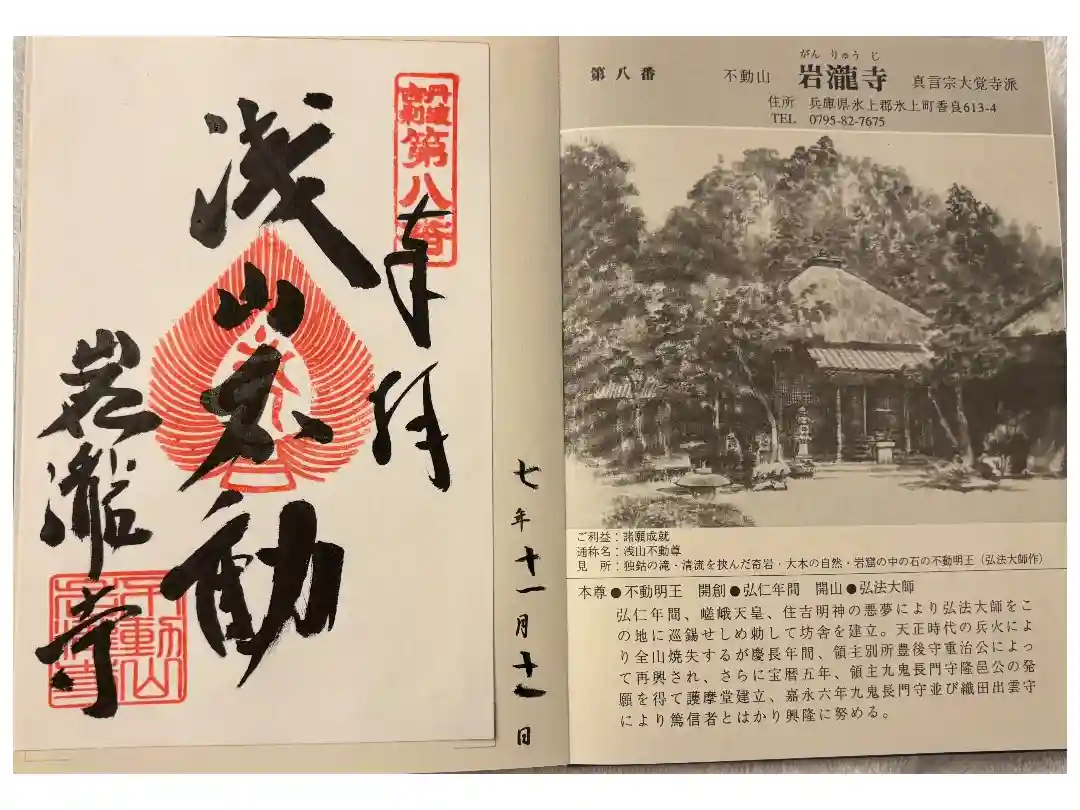 丹波
古刹
第八番
奉拝
浅山不動
岩瀧寺
七年十一月十一日
がんりゅうじ
第八番 不動山 岩瀧寺 真言宗大覚寺派
住所 兵庫県氷上郡氷上町香良613-4
TEL 0795-82-7675
ご利益：諸願成就
通称名：浅山不動尊
見 所：独鈷の滝・清流を挟んだ奇岩・大木の自然・岩窟の中の石の不動明王（弘法大師作）
本尊●不動明王 開創●弘仁年間 開山●弘法大師
弘仁年間、嵯峨天皇、住吉明神の悪夢により弘法大師をこ
の地に巡錫せしめ勅して坊舎を建立。天正時代の兵火によ
り全山焼失するが慶長年間、領主別所豊後守重治公によっ
て再興され、さらに宝暦五年、領主九鬼長門守隆邑公の発
願を得て護摩堂建立、嘉永六年九鬼長門守並び織田出雲守
により篤信者とはかり興隆に努める。